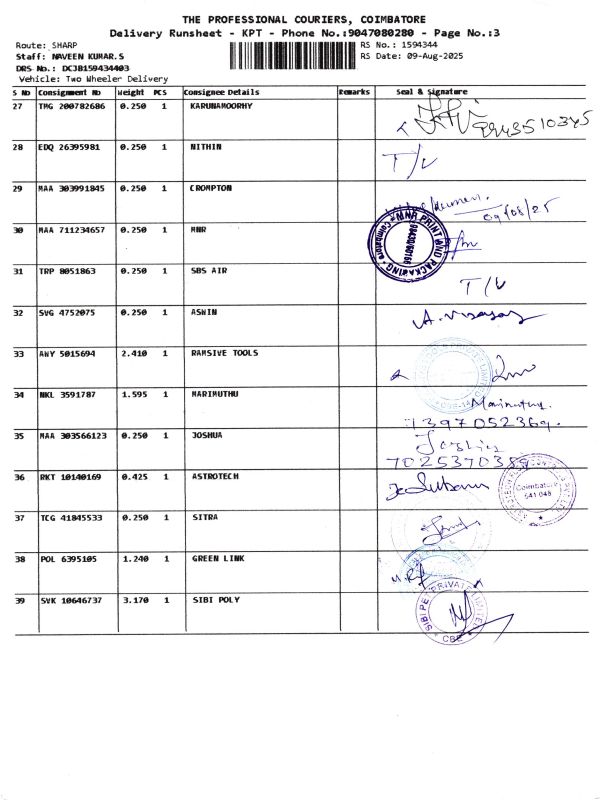 THE PROFESSIONAL COURIERS, COIMBATORE
Delivery Runsheet - KPT - Phone No.:9047080280 - Page No.:3
Route: SHARP
RS No.: 1594344
Staff: NAVEEN KUMAR.S
RS Date: 09-Aug-2025
DRS No.: DCJB159434403
Vehicle: Two Wheeler Delivery
S No Consignment No Weight PCS Consignee Details Remarks Seal & Signature
27 TMG 200782686 0.250 1 KARUNAMOORHY
9943510345
28 EDQ 26395981 0.250 1 NITHIN
T/V
29 MAA 303991845 0.250 1 CROMPTON
09/08/25
30 MAA 711234657 0.250 1 MNR
MNR PRINT AND PACKAGING
Coimbatore
31 TRP 8051863 0.250 1 SBS AIR
T/V
32 SVG 4752075 0.250 1 ASWIN
33 ANY 5015694 2.410 1 RAMSIVE TOOLS
34 NKL 3591787 1.595 1 MARIMUTHU
Marimuthu.
7397052369.
35 MAA 303566123 0.250 1 JOSHUA
36 RKT 10140169 0.425 1 ASTROTECH
Coimbatore
641 048
37 TCG 41845533 0.250 1 SITRA
38 POL 6395105 1.240 1 GREEN LINK
39 SVK 10646737 3.170 1 SIBI POLY
SIBI PET PRIVATE LIMITED
CBE